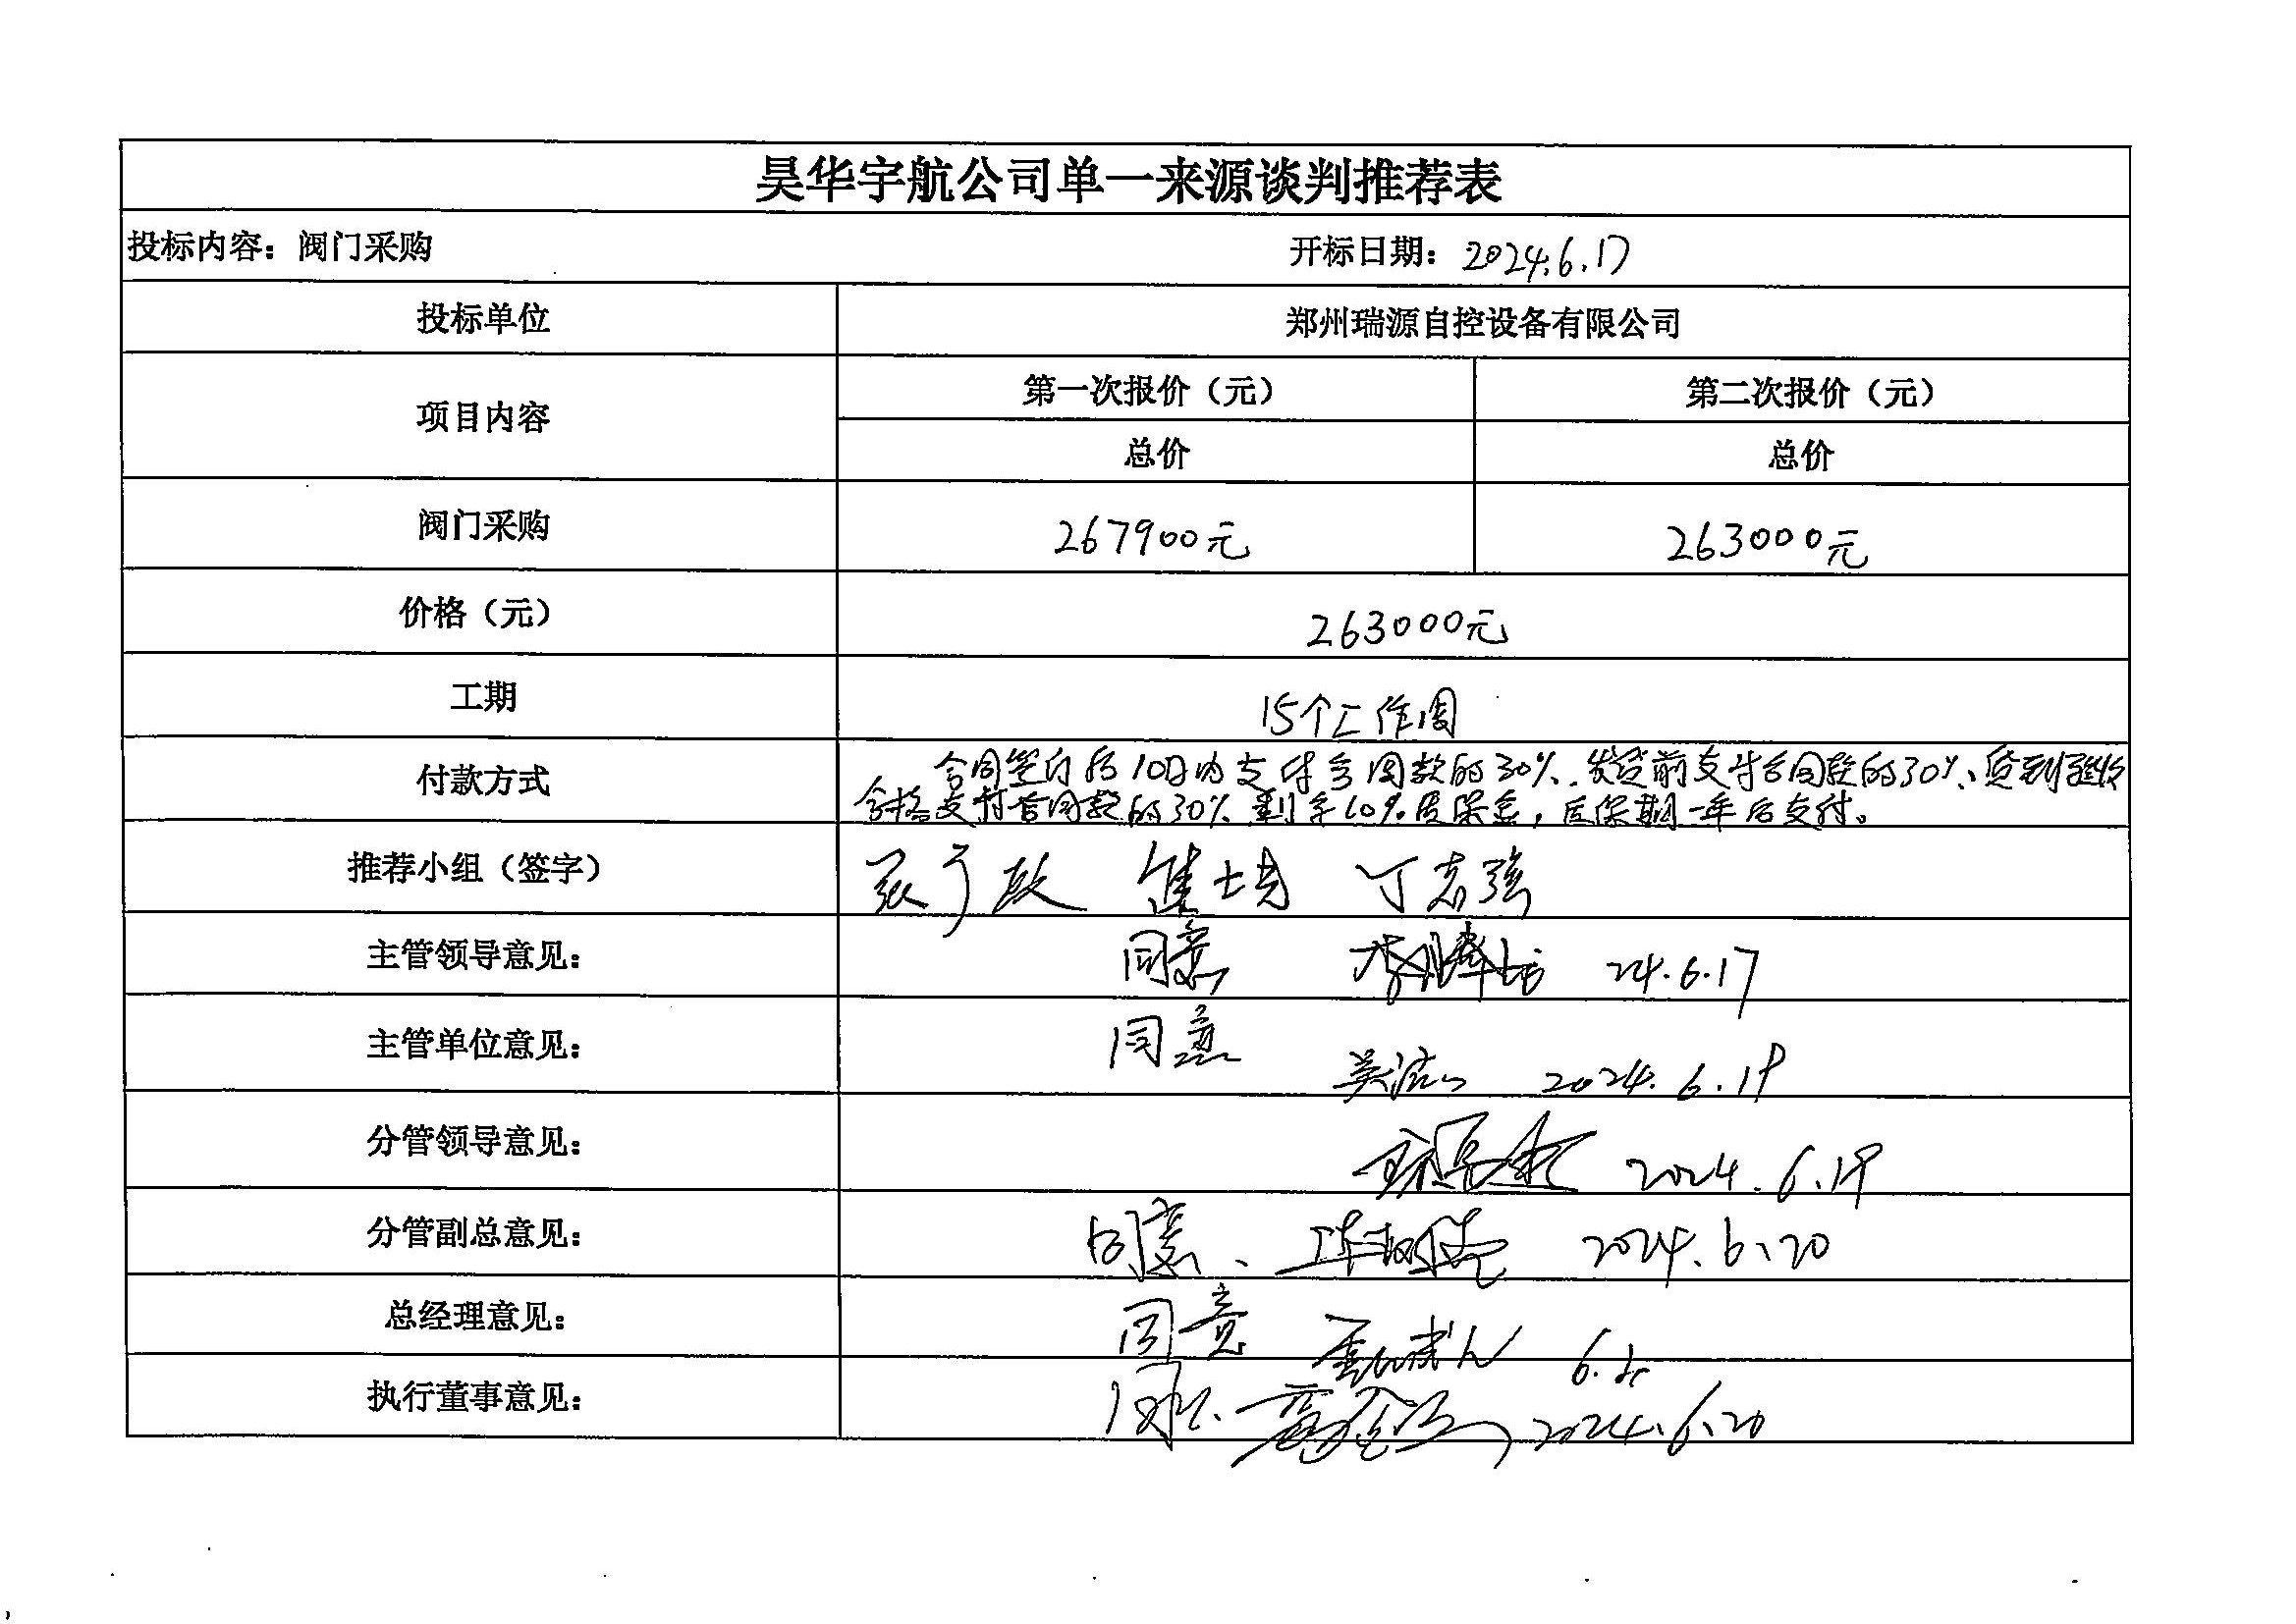 昊华宇航公司单一来源谈判推荐表
投标内容：阀门采购 开标日期：2024.6.17
投标单位 郑州瑞源自控设备有限公司
项目内容 第一次报价（元） 第二次报价（元）
总价 总价
阀门采购 267900元 263000元
价格（元） 263000元
工期 15个工作周
付款方式 合同签订后10日内支付合同款的30%、发货前支付合同款的30%、货到验收
合格支付合同款的30%剩余10%质保金，质保期一年后支付。
推荐小组（签字） 丁志强
主管领导意见： 同意 24.6.17
主管单位意见： 同意 2024.6.19
分管领导意见： 2024.6.19
分管副总意见： 同意、 2024.6.20
总经理意见： 同意
执行董事意见： 2024.6.20